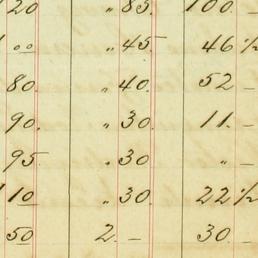 20 " 85. 100 –
1 00 " 45 46 1/2
80 " 40. 52 –
90. " 30 11. –
95. " 30 " –
110 " 30 22 1/2
50 2. – 30. –